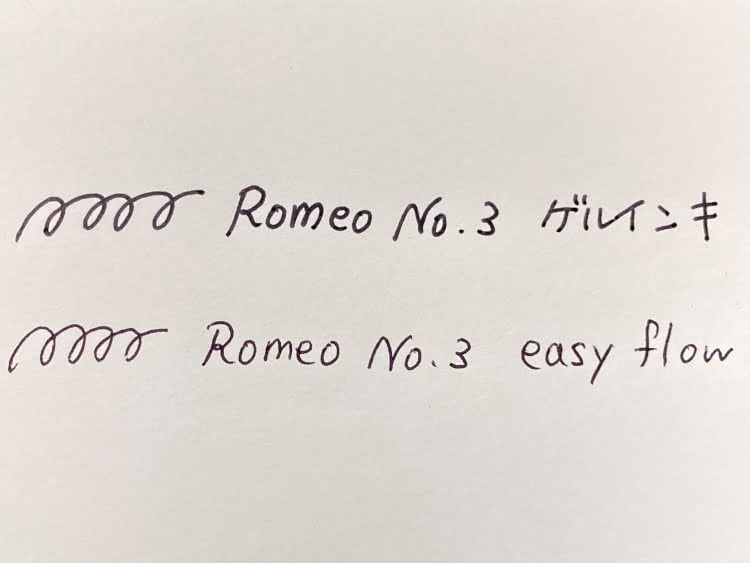 Romeo No.3 ゲルインキ
Romeo No.3 easy flow